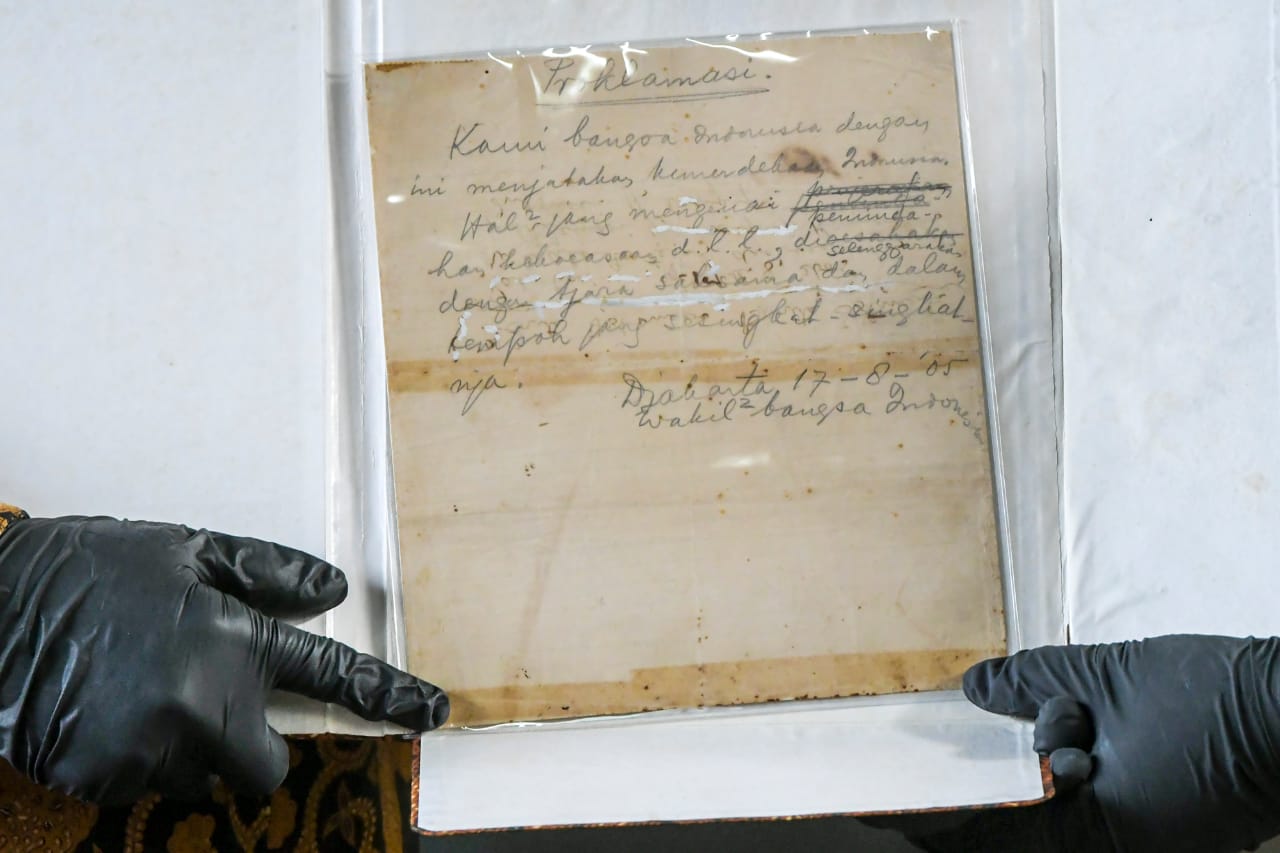 Proklamasi.
Kami bangsa Indonesia dengan
ini menjatakan kemerdekaan Indonesia.
Hal² jang mengenai
peminda-
han kekoeasaan d.l.l., diselenggarakan
dengan tjara saksama dan dalam
tempoh jang sesingkat-singkat-
nja.
Djakarta, 17-8-'05
Wakil² bangsa Indonesia